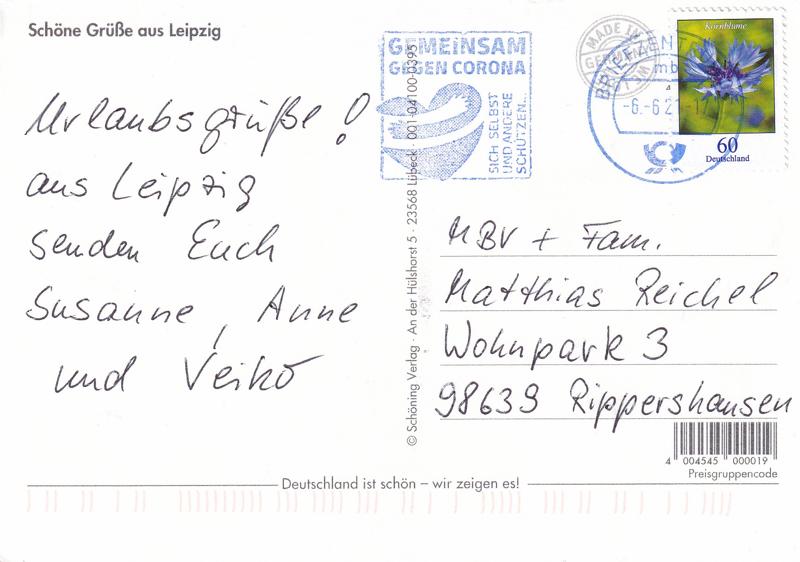 Schöne Grüße aus Leipzig
Urlaubsgrüße!
aus Leipzig
senden Euch
Susanne, Anne
und Veiko
GEMEINSAM
GEGEN CORONA
SICH SELBST
UND ANDERE
SCHÜTZEN.
© Schöning Verlag · An der Hülshorst 5 · 23568 Lübeck · 001-04100-0395
MADE IN
GERMANY
BRIEFZEN
-6.-6.2
Kornblume
60
Deutschland
MBV + Fam.
Matthias Reichel
Wohnpark 3
98639 Rippershausen
4 004545 000019
Preisgruppencode
Deutschland ist schön – wir zeigen es!